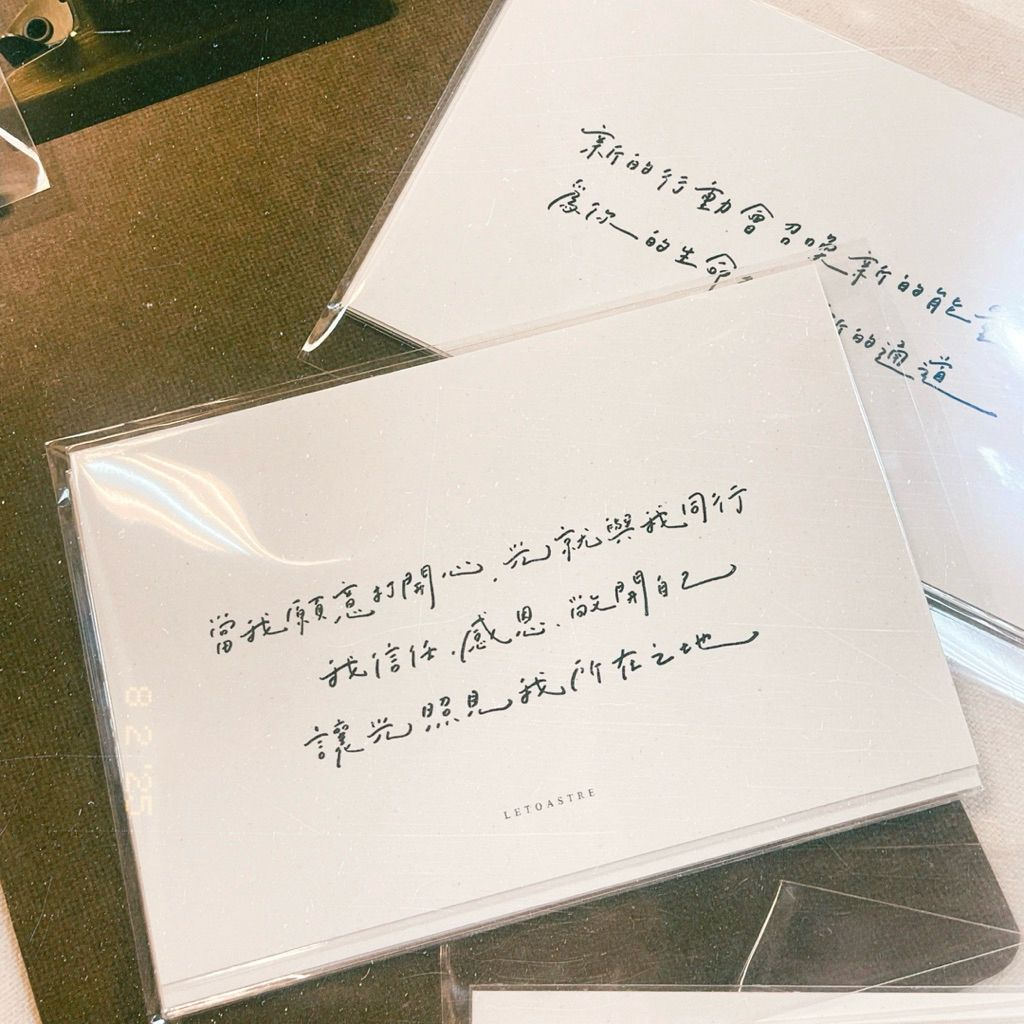 新的行動會召喚新的能量
為你的生命
新的通道
當我願意打開心、光就與我同行
我信任、感恩、敞開自己
讓光照見我所在之地
LETOASTRE
8 2 '25